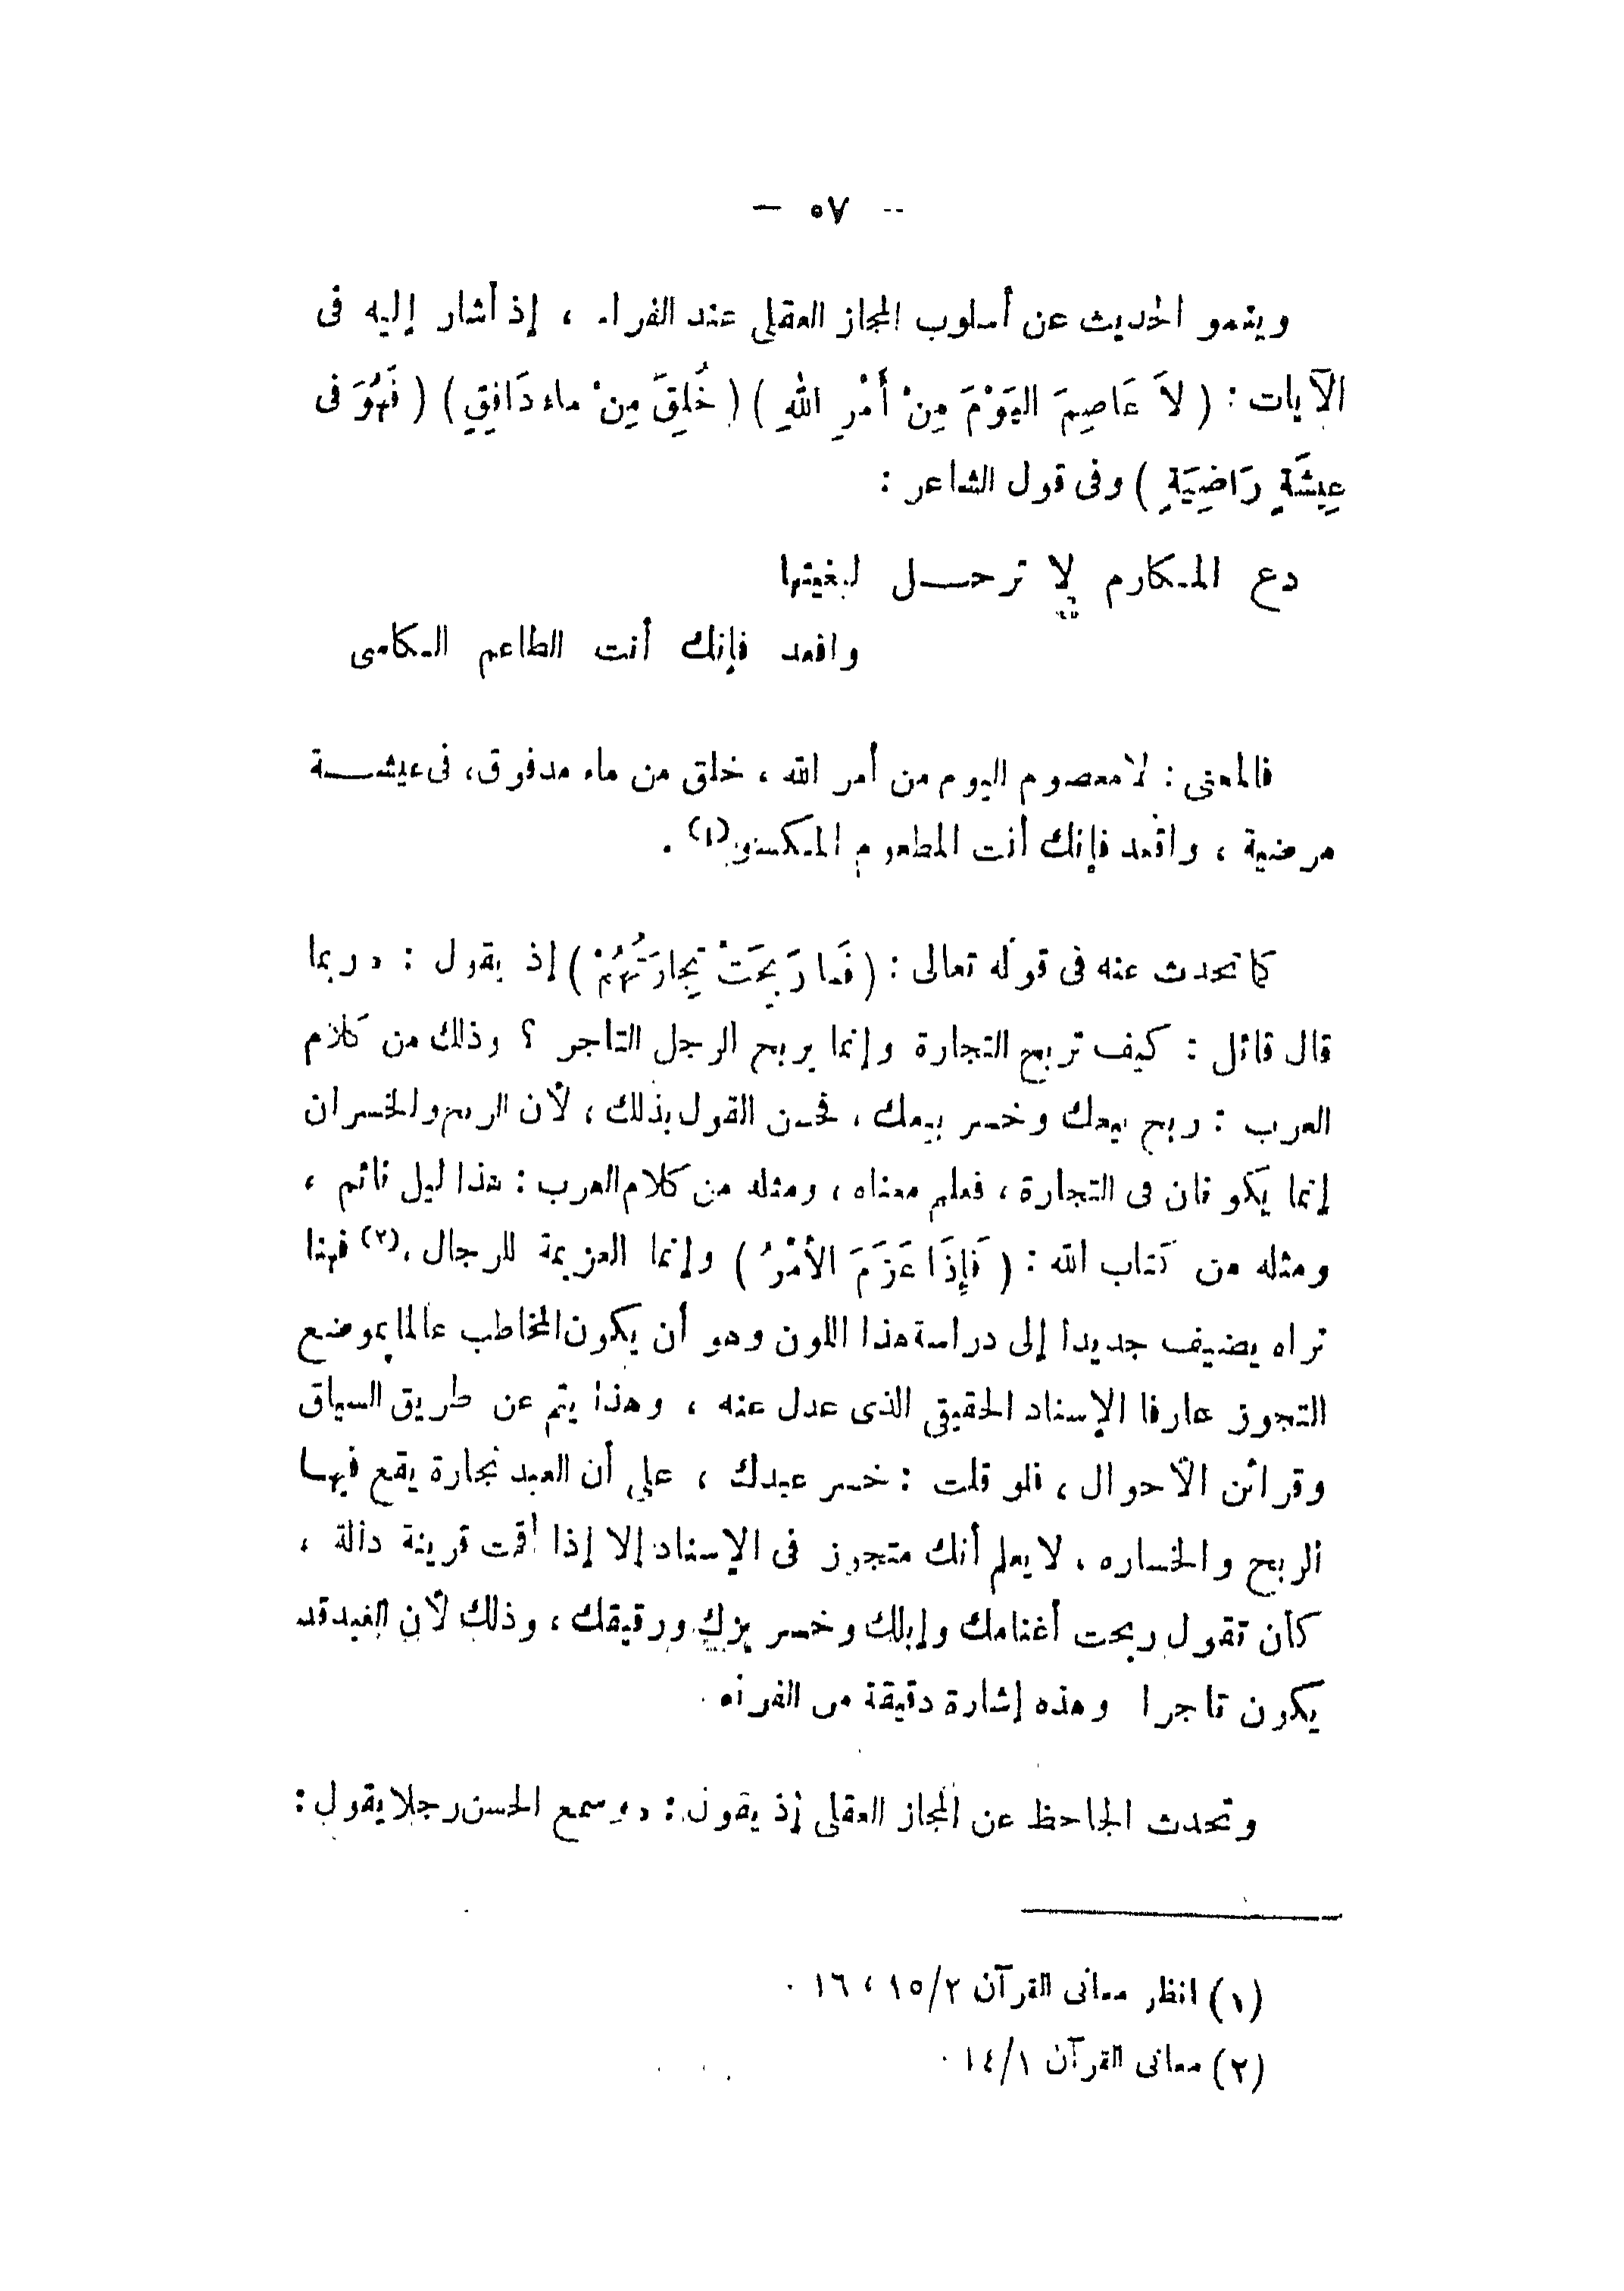 -- ٥٧ —
وينمو الحديث عن أسلوب المجاز العقلى عند الفراء ، إذ أشار إليه فى
الآيات : ( لاَ عَاصِمَ اليَوْمَ مِنْ أَمْرِ اللهِ ) ( خُلِقَ مِنْ ماء دَافِقٍ ) ( فَهُوَ فى
عِيشَةٍ رَاضِيَةٍ ) وفى قول الشاعر :
دع المكارم لا ترحـــل لبغيتها
واقعد فإنك أنت الطاعم الكاسى
فالمعنى : لامعصوم اليوم من أمر الله ، خلق من ماء مدفوق، فى عيشـــة
مرضية ، واقعد فإنك أنت المطعوم المكسو(١) .
كما تحدث عنه فى قوله تعالى : ( فَما رَبِحَتْ تِجارَتُهُمْ ) إذ يقول : « ربما
قال قائل : كيف تربح التجارة وإنما يربح الرجل التاجر ؟ وذلك من كلام
العرب : ربح بيعك وخسر بيعك ، فحسن القول بذلك ، لأن الربح والخسران
إنما يكونان فى التجارة ، فعلم معناه ، ومثله من كلام العرب : هذا ليل نائم ،
ومثله من كتاب الله : ( فَإِذَا عَزَمَ الأَمْرُ ) وإنما العزيمة للرجال ،(٢) فهنا
تراه يضيف جديدا إلى دراسة هذا اللون وهو أن يكون المخاطب عالما بموضع
التجوز عارفا الإسناد الحقيقى الذى عدل عنه ، وهذا يتم عن طريق السياق
وقرائن الأحوال ، فلو قلت : خسر عبدك ، على أن العبد تجارة يقع فيها
الربح والخساره ، لا يعلم أنك متجوز فى الإسناد إلا إذا أقمت قرينة دالة ،
كأن تقول ربحت أغنامك وإبلك وخسر بزك ورقيقك ، وذلك لأن العبد قد
يكون تاجرا وهذه إشارة دقيقة من الفراء .
وتحدث الجاحظ عن المجاز العقلى إذ يقول : « وسمع الحسن رجلا يقول :
(١) انظر معانى القرآن ١٥/٢ ، ١٦ .
(٢) معانى القرآن ١٤/١ .